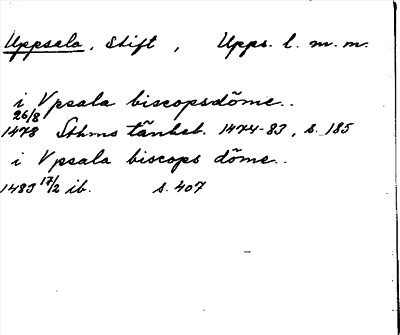 Uppsala, Stift, Upps. l. m. m.
i Vpsala biscopsdöme..
26/8
1478 Sthms tänkeb. 1474-83, s. 185
i Vpsala biscops döme..
1483 17/2 ib. s. 407